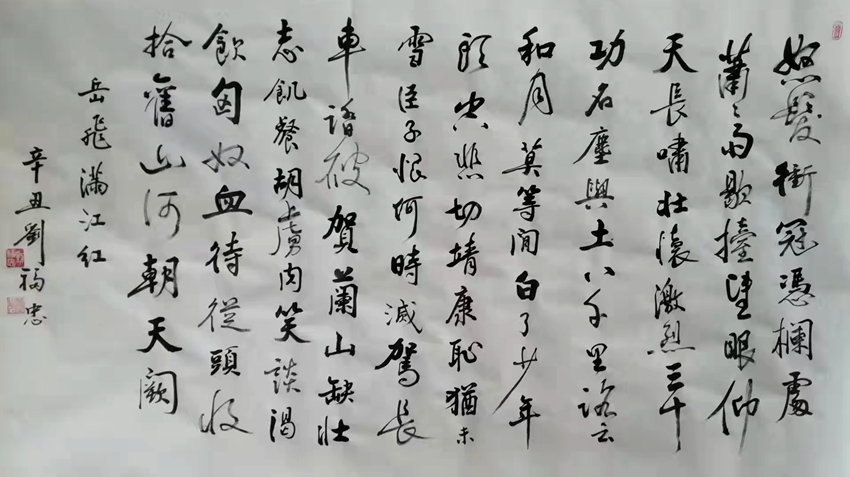 怒髮衝冠憑欄處
蕭〻雨歇擡望眼仰
天長嘯壯懷激烈三十
功名塵與土八千里路云
和月莫等閒白了少年
頭空悲切靖康恥猶未
雪臣子恨何時滅駕長
車踏破賀蘭山缺壯
志飢餐胡虜肉笑談渴
飲匈奴血待從頭收
拾舊山河朝天闕
岳飛滿江红
辛丑劉福忠